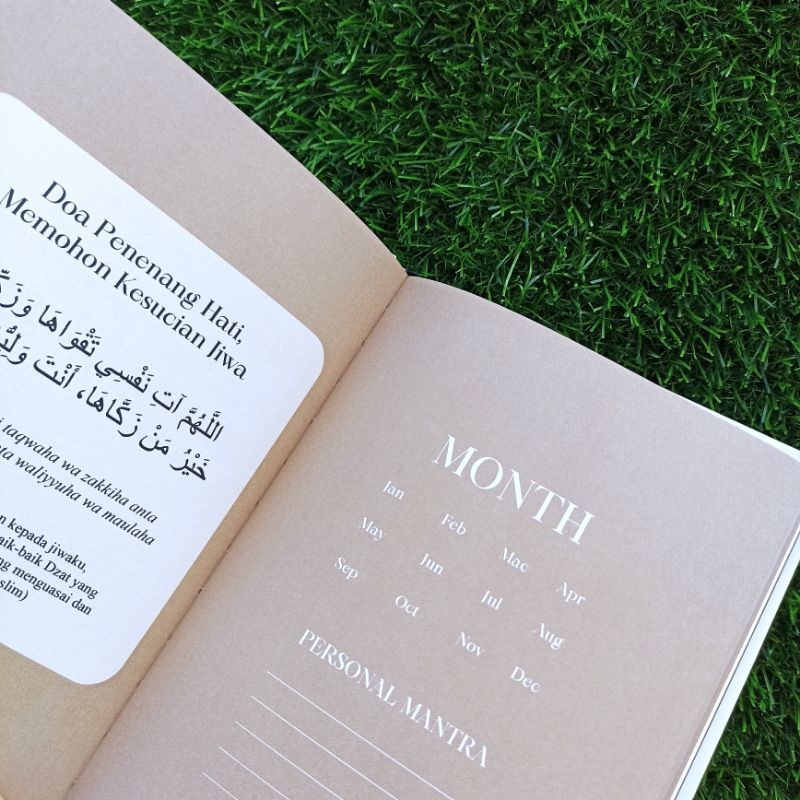 Doa Penenang Hati,
Memohon Kesucian Jiwa
اللَّهُمَّ آتِ نَفْسِي تَقْوَاهَا
خَيْرُ مَنْ زَكَّاهَا، أَنْتَ
taqwaha wa zakkiha anta
waliyyuha wa maulaha
kepada jiwaku,
aik-baik Dzat yang
menguasai dan
MONTH
Jan Feb Mac Apr
May Jun Jul Aug
Sep Oct Nov Dec
PERSONAL MANTRA